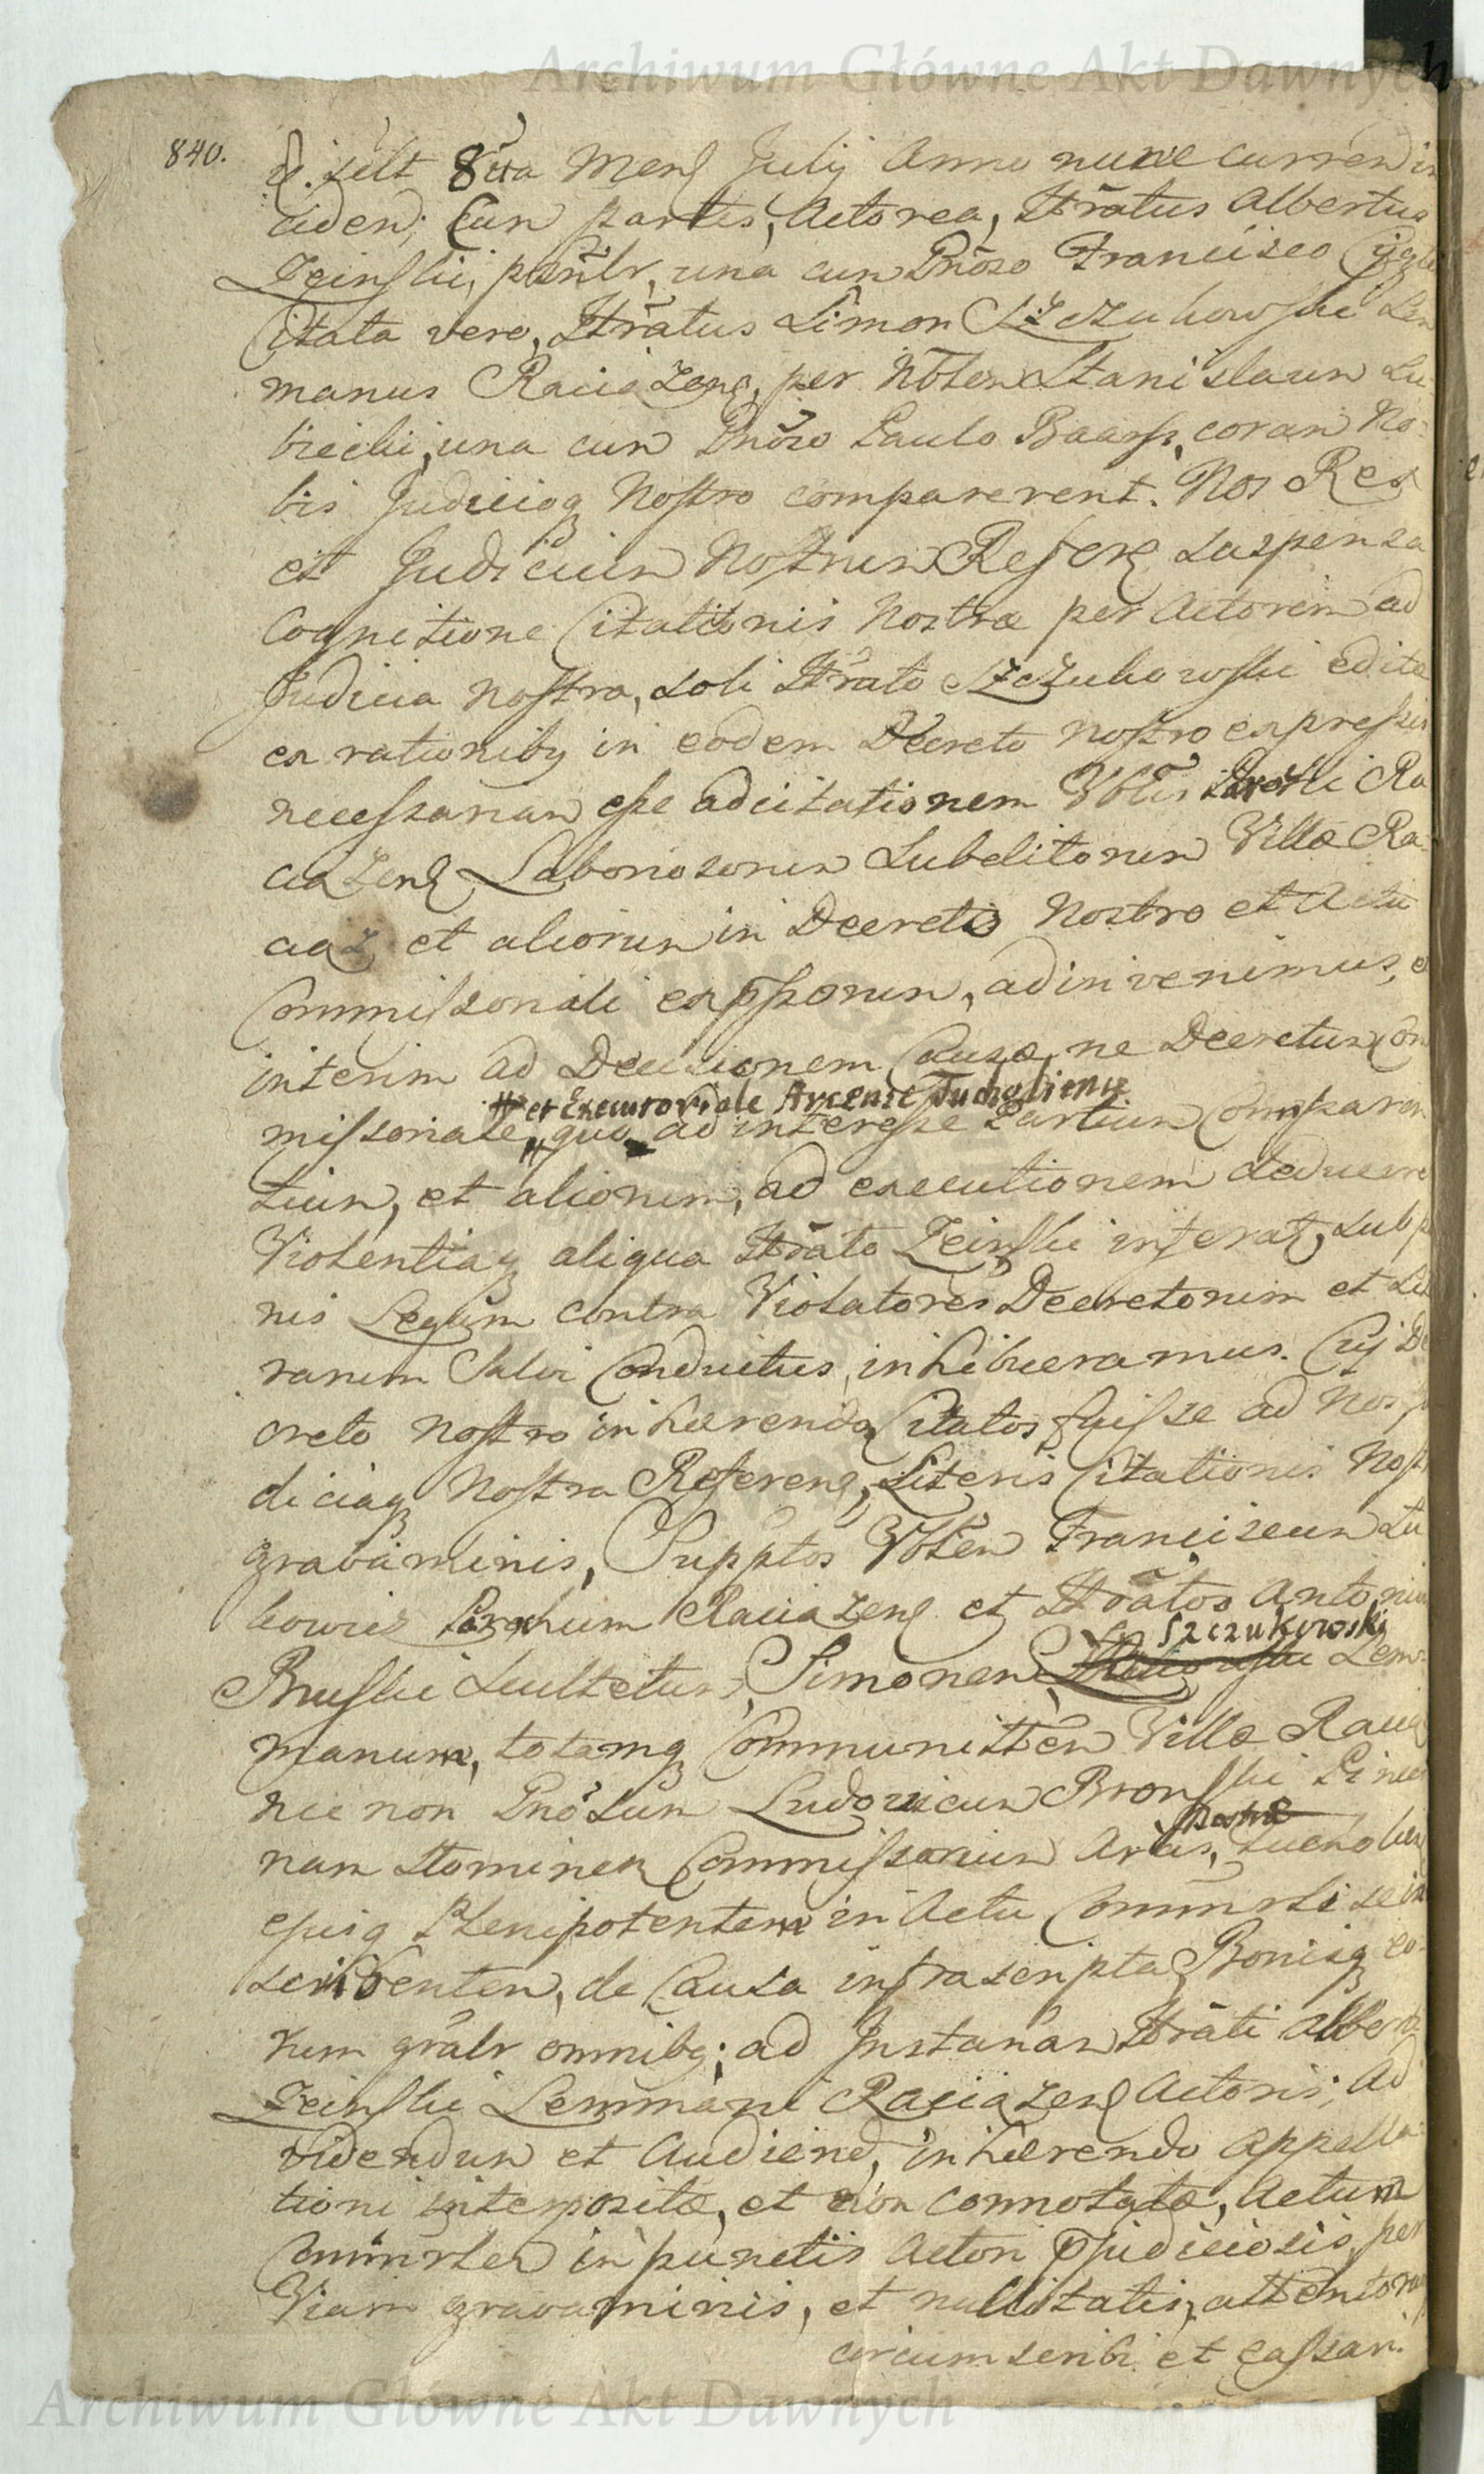 Archiwum Główne Akt Dawnych
840.
d. scilt 8va Mens Julij Anno nunc curren in
ciden; Cum partes, Actorea, Strãtus Albertus
Zeinski, psñlr, una cum Gnõso Francisco
Citata vero, Strãtus Simon Szczukowski Len
manus Raciazens, per Nõblem Stanislaum Lu
biecki, una cum Gnõso Paulo Baass, coram No-
bis Judicioq Nostro comparerent. Nos Rex
et Judicium Nostrum Refer. suspensa
Cognitione Citationis Nostræ per Actorem ad
Judicia Nostra, soli Strãto Szczukowski edita
ex rationibq in eodem Decreto Nostro expressis
necessariam esse adcitationem Vblis Parochi Ra
ciazens Laboriosorum Subditorum Villæ Ra-
ciaz et aliorum in Decreto Nostro et Actu
Commissoriali expssorum, adinvenimus, et
interim ad Decisionem Causæ, ne Decretum Com
et Executoriale Arcense Tucholiens
missoriale, quo ad interesse Partium Comparen
tium, et aliorum, ad executionem deducere
Violentiaq aliqua Strãto Zeinski inferat, sub pœ
nis Legum contra Violatores Decretorum et Lit
rarum Salvi Conductus, inhibueramus. Cuj De
creto Nostro inhærendo Citatos fuisse ad Nos Ju
diciaq Nostra Referens, Literis Citationis Nostr
gravaminis, Suppttos Vblem Franciscum Lu
kowicz Parochum Raciazens et Strãtos Antonium
Szczukowski
Bruski Scultetum, Simonem Len-
manum, totamq Communittem Villæ Raciaz
nec non Gnõsum Ludovicum Bronski Pincer
nam Stominen Commissarium Arcis, Tucholien
ejusq Plenipotentem in Actu Commrli se in
scribentem, de Causa infrascripta Bonisq eo-
rum grãlr omnibq; ad Instanam Strãti Alberti
Zeinski Lemmani Raciazens Actoris; Ad
videndum et Audiend, inhærendo Appella-
tioni interpositæ, et non connotatæ, Actum
Commrlem in punctis Actori pjudiciosis, per
Viam gravaminis, et nullitatis, attentorum
circumscribi et cassari.
Archiwum Główne Akt Dawnych